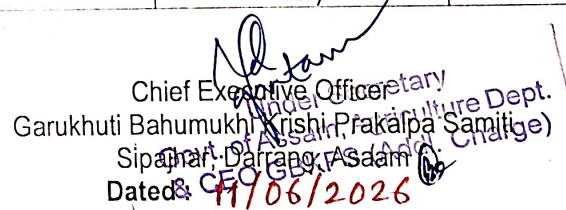 Chief Executive Officer
Garukhuti Bahumukhi Krishi Prakalpa Samiti
Sipajhar, Darrang, Asaam
Dated: 11/06/2026
Under Secretary
Govt. of Assam, Agriculture Dept.
& CEO GBKPS (Addl. Charge)